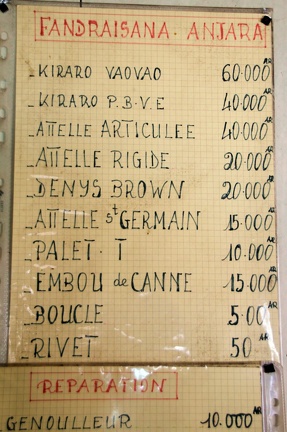 FANDRAISANA. ANJARA
_KIRARO VAOVAO 60.000 AR
_KIRARO P.B.V.E 40.000 AR
_ATTELLE ARTICULEE 40.000 AR
_ATTELLE RIGIDE 20.000 AR
_DENYS BROWN 20.000 AR
_ATTELLE St GERMAIN 15.000 AR
_PALET. T 10.000 AR
_EMBOU de CANNE 15.000 AR
_BOUCLE 5.00 AR
_RIVET 50 AR
REPARATION
GENOULLEUR 10.000 AR